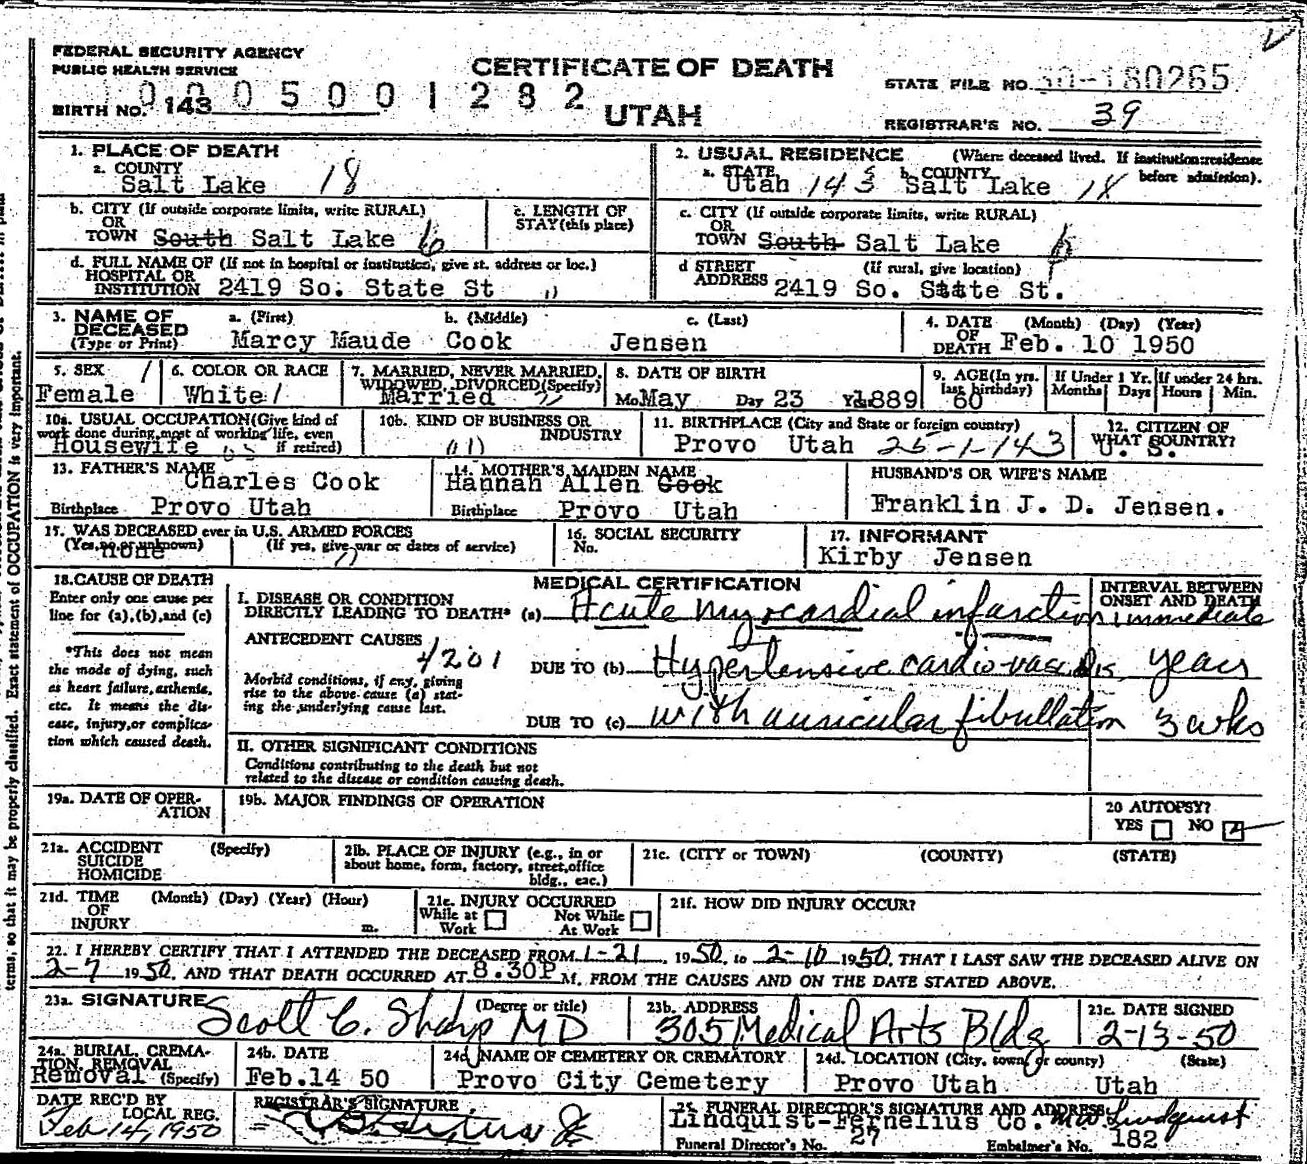 FEDERAL SECURITY AGENCY
PUBLIC HEALTH SERVICE
BIRTH NO. 143
0005001282
CERTIFICATE OF DEATH
UTAH
STATE FILE NO. 50-180265
REGISTRAR'S NO. 39
1. PLACE OF DEATH
a. COUNTY
Salt Lake 18
2. USUAL RESIDENCE (Where deceased lived. If institution:residence before admission).
a. STATE b. COUNTY
Utah 143 Salt Lake 18
b. CITY (If outside corporate limits, write RURAL)
OR
TOWN South Salt Lake 6
c. LENGTH OF
STAY (this place)
c. CITY (If outside corporate limits, write RURAL)
OR
TOWN South Salt Lake
d. FULL NAME OF (If not in hospital or institution, give st. address or loc.)
HOSPITAL OR
INSTITUTION 2419 So. State St
d STREET (If rural, give location)
ADDRESS 2419 So. State St.
3. NAME OF DECEASED
(Type or Print)
a. (First) b. (Middle) c. (Last)
Marcy Maude Cook Jensen
4. DATE OF DEATH (Month) (Day) (Year)
Feb. 10 1950
5. SEX 1
Female
6. COLOR OR RACE
White 1
7. MARRIED, NEVER MARRIED,
WIDOWED, DIVORCED(Specify)
Married
8. DATE OF BIRTH
Mo. May Day 23 Yr. 1889
9. AGE(In yrs. last birthday)
60
If Under 1 Yr. Months Days
If under 24 hrs. Hours Min.
10a. USUAL OCCUPATION(Give kind of
work done during most of working life, even
if retired)
Housewife
10b. KIND OF BUSINESS OR
INDUSTRY
11. BIRTHPLACE (City and State or foreign country)
Provo Utah 25-1-143
12. CITIZEN OF
WHAT COUNTRY?
U. S.
13. FATHER'S NAME
Charles Cook
Birthplace Provo Utah
14. MOTHER'S MAIDEN NAME
Hannah Allen Cook
Birthplace Provo Utah
HUSBAND'S OR WIFE'S NAME
Franklin J. D. Jensen.
15. WAS DECEASED ever in U.S. ARMED FORCES
(Yes, no or unknown) (If yes, give war or dates of service)
none
16. SOCIAL SECURITY
No.
17. INFORMANT
Kirby Jensen
18. CAUSE OF DEATH
Enter only one cause per
line for (a),(b),and (c)
*This does not mean
the mode of dying, such
as heart failure, asthenia,
etc. It means the dis-
ease, injury,or complica-
tion which caused death.
MEDICAL CERTIFICATION
INTERVAL BETWEEN
ONSET AND DEATH
I. DISEASE OR CONDITION
DIRECTLY LEADING TO DEATH* (a) Acute myocardial infarction immediate
ANTECEDENT CAUSES
4201
DUE TO (b) Hypertensive cardio-vasc dis years
Morbid conditions, if any, giving
rise to the above cause (a) stat-
ing the underlying cause last.
DUE TO (c) with auricular fibullation 3 wks
II. OTHER SIGNIFICANT CONDITIONS
Conditions contributing to the death but not
related to the disease or condition causing death.
19a. DATE OF OPER-
ATION
19b. MAJOR FINDINGS OF OPERATION
20 AUTOPSY?
YES NO
21a. ACCIDENT (Specify)
SUICIDE
HOMICIDE
21b. PLACE OF INJURY (e.g., in or
about home, form, factory, street,office
bldg., eac.)
21c. (CITY or TOWN) (COUNTY) (STATE)
21d. TIME (Month) (Day) (Year) (Hour)
OF
INJURY m.
21e. INJURY OCCURRED
While at Work Not While At Work
21f. HOW DID INJURY OCCUR?
22. I HEREBY CERTIFY THAT I ATTENDED THE DECEASED FROM 1-21, 1950, to 2-10 1950, THAT I LAST SAW THE DECEASED ALIVE ON
2-7 1950, AND THAT DEATH OCCURRED AT 8.30P M. FROM THE CAUSES AND ON THE DATE STATED ABOVE.
23a. SIGNATURE (Degree or title)
Scott C. Sharp MD
23b. ADDRESS
305 Medical Arts Bldg
23c. DATE SIGNED
2-13-50
24a. BURIAL, CREMA-
TION, REMOVAL
Removal (Specify)
24b. DATE
Feb.14 50
24d. NAME OF CEMETERY OR CREMATORY
Provo City Cemetery
24d. LOCATION (City, town, or county) (State)
Provo Utah Utah
DATE REC'D BY
LOCAL REG.
Feb 14, 1950
REGISTRAR'S SIGNATURE
25. FUNERAL DIRECTOR'S SIGNATURE AND ADDRESS
Lindquist-Fernelius Co. Lindquist
Funeral Director's No. 27 Embalmer's No. 182
terms, so that it may be properly classified. Exact statement of OCCUPATION is very important.